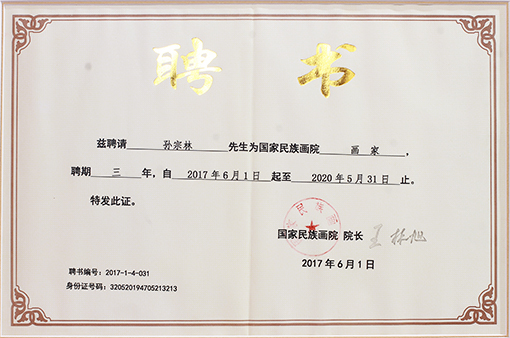 聘书
兹聘请 孙宗林 先生为国家民族画院 画家，
聘期 三 年，自 2017年6月1日 起至 2020年5月31日 止。
特发此证。
国家民族画院 院长
2017年6月1日
聘书编号：2017-1-4-031
身份证号码：320520194705213213